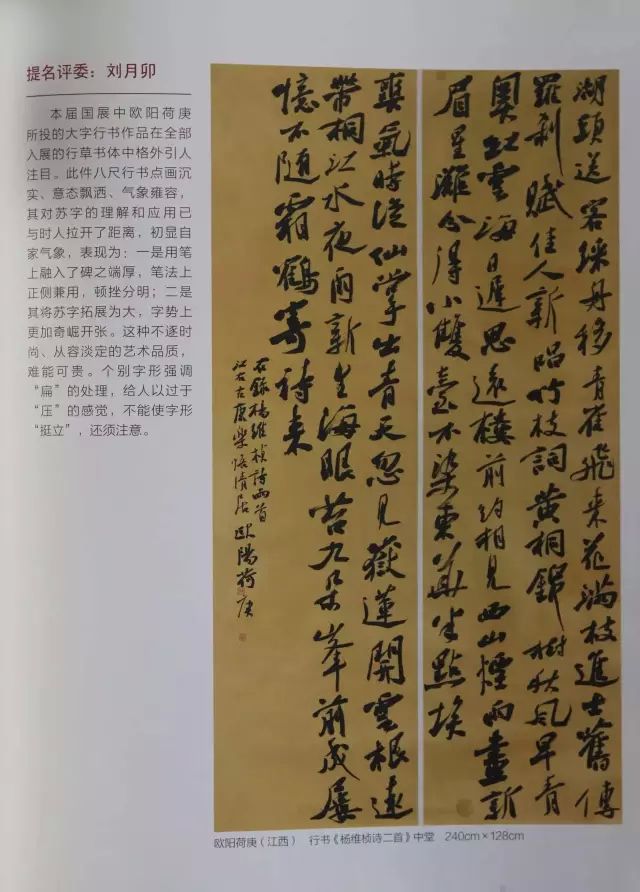 提名评委：刘月卯
本届国展中欧阳荷庚
所投的大字行书作品在全部
入展的行草书体中格外引人
注目。此件八尺行书点画沉
实、意态飘洒、气象雍容，
其对苏字的理解和应用已
与时人拉开了距离，初显自
家气象，表现为：一是用笔
上融入了碑之端厚，笔法上
正侧兼用，顿挫分明；二是
其将苏字拓展为大，字势上
更加奇崛开张。这种不逐时
尚、从容淡定的艺术品质，
难能可贵。个别字形强调
“扁”的处理，给人以过于
“压”的感觉，不能使字形
“挺立”，还须注意。
湖頭送客綵舟移青雀飛来花滿枝進士舊傳
羅刹賦佳人新唱竹枝詞黄桐錦樹秋风早青
奧紅雲海日遲思遠樓前約相見西山煙雨畫新
眉星灘分得小雙臺不染東華半點埃
爽氣時從仙掌出青天忽見嶽蓮開雲根遠
帶桐江水夜雨新生海眼苔九朵峯前成屢
憶不随霜鶴寄詩来
右錄楊維楨詩兩首
江右古康樂悟情居歐陽荷庚
欧阳荷庚（江西） 行书《杨维桢诗二首》中堂 240cm×128cm